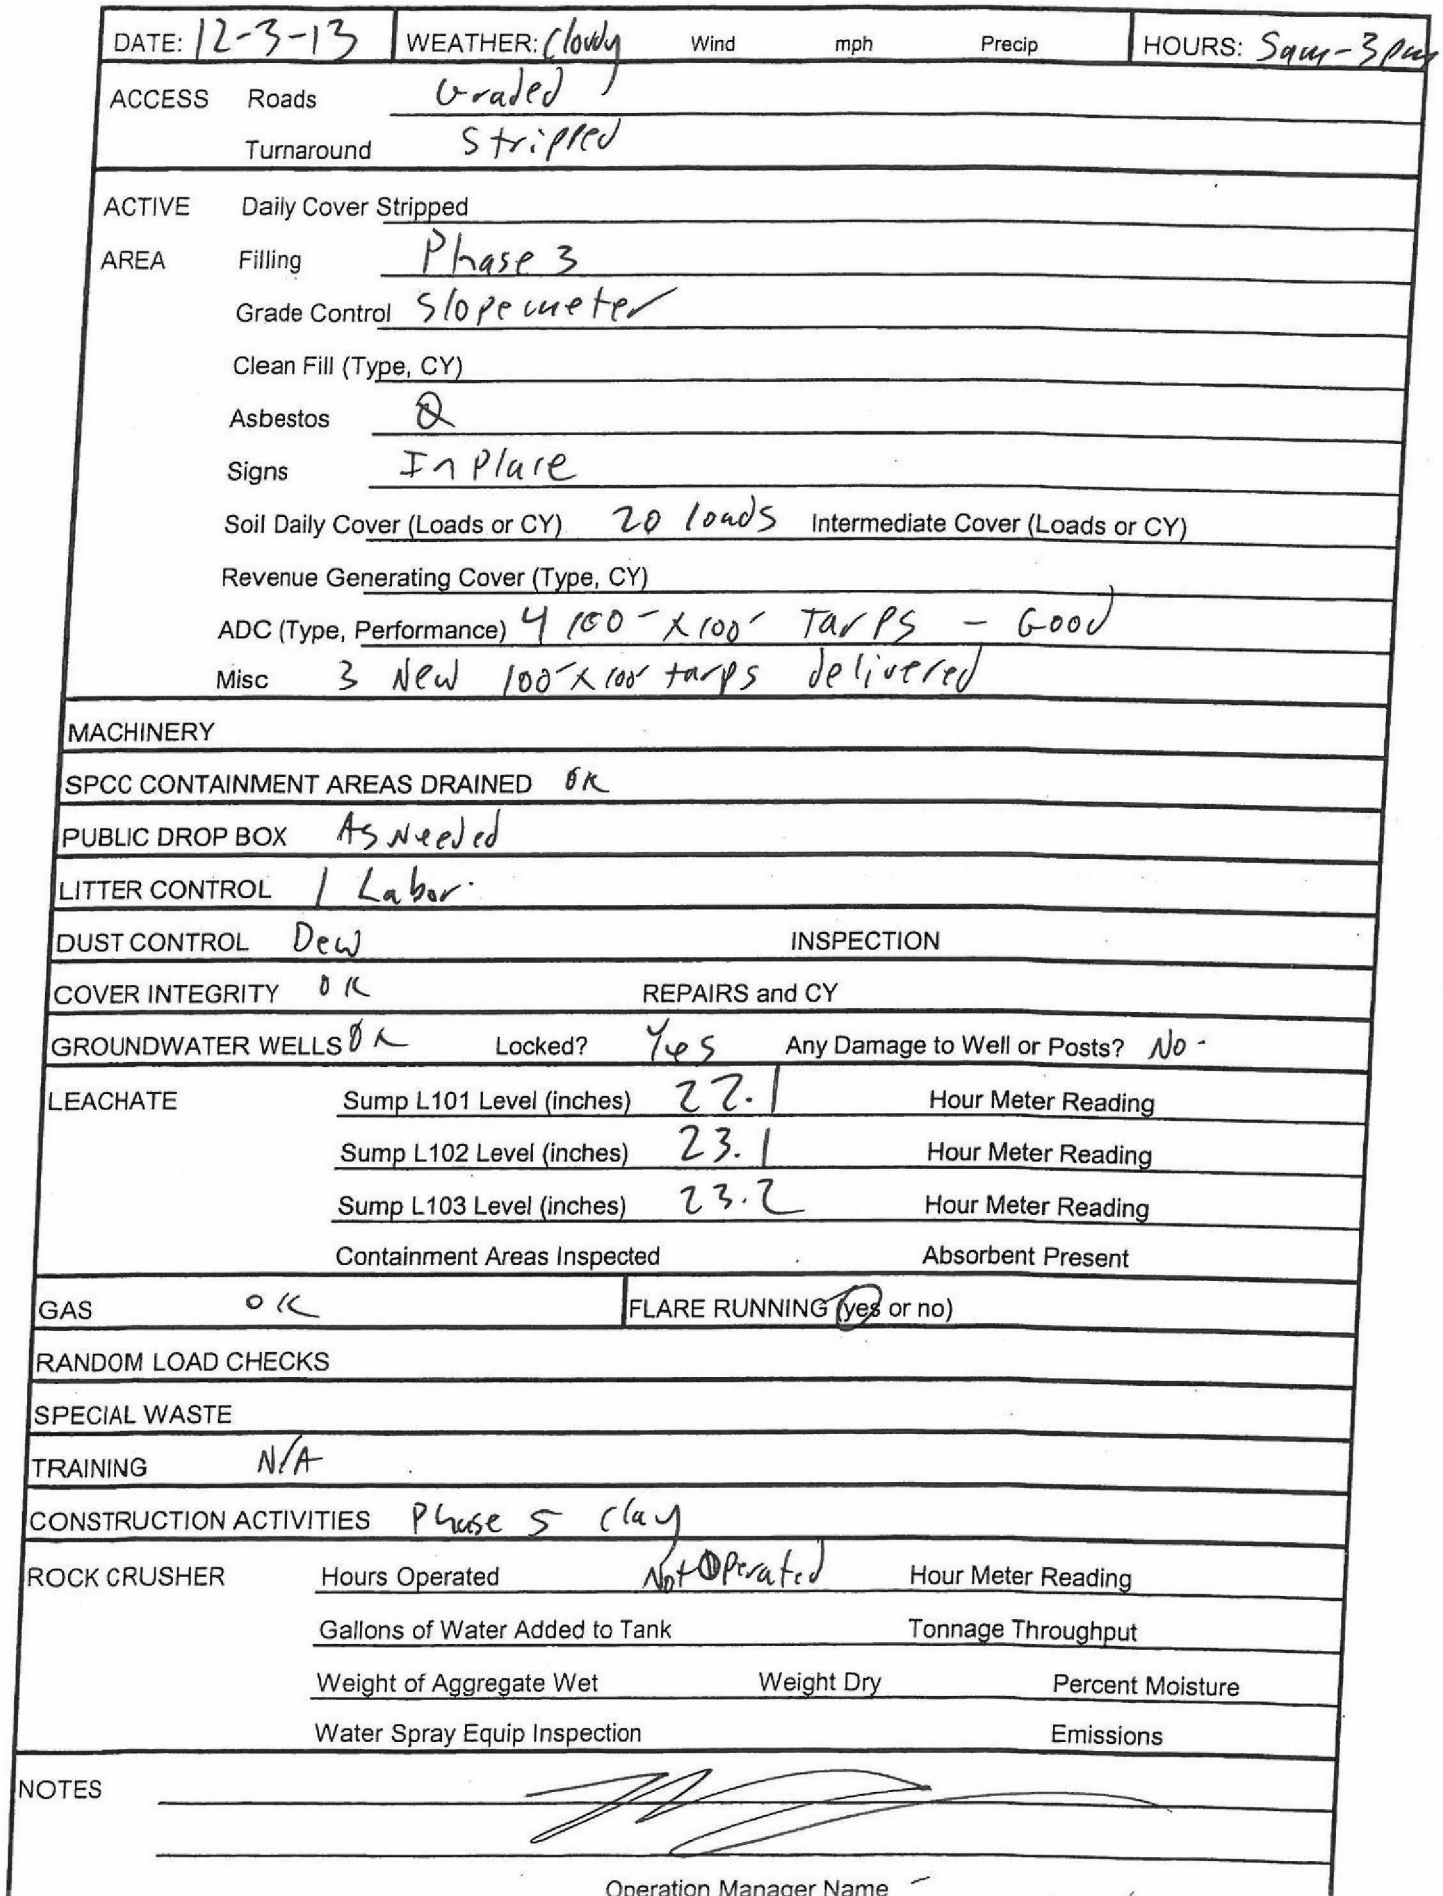 DATE: 12-3-13 WEATHER: Cloudy Wind mph Precip HOURS: 5am-3pm
ACCESS Roads Graded
Turnaround Stripped
ACTIVE Daily Cover Stripped
AREA Filling Phase 3
Grade Control Slopemeter
Clean Fill (Type, CY)
Asbestos
Signs In Place
Soil Daily Cover (Loads or CY) 20 loads Intermediate Cover (Loads or CY)
Revenue Generating Cover (Type, CY)
ADC (Type, Performance) 4 100' x 100' Tarps - Good
Misc 3 New 100' x 100' tarps delivered
MACHINERY
SPCC CONTAINMENT AREAS DRAINED OK
PUBLIC DROP BOX As Needed
LITTER CONTROL 1 Labor
DUST CONTROL Dew INSPECTION
COVER INTEGRITY OK REPAIRS and CY
GROUNDWATER WELLS OK Locked? Yes Any Damage to Well or Posts? No
LEACHATE Sump L101 Level (inches) 22.1 Hour Meter Reading
Sump L102 Level (inches) 23.1 Hour Meter Reading
Sump L103 Level (inches) 23.2 Hour Meter Reading
Containment Areas Inspected Absorbent Present
GAS OK FLARE RUNNING (yes or no)
RANDOM LOAD CHECKS
SPECIAL WASTE
TRAINING N/A
CONSTRUCTION ACTIVITIES Phase 5 Clay
ROCK CRUSHER Hours Operated Not Operated Hour Meter Reading
Gallons of Water Added to Tank Tonnage Throughput
Weight of Aggregate Wet Weight Dry Percent Moisture
Water Spray Equip Inspection Emissions
NOTES
Operation Manager Name